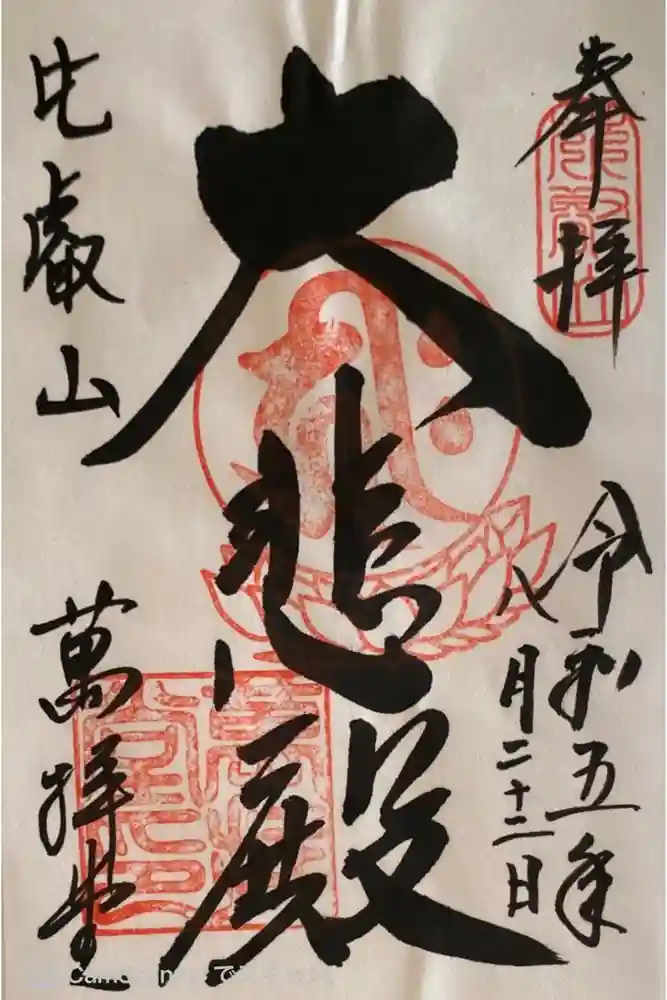 奉拝
令和五年
八月二十二日
大悲殿
比叡山
萬拝堂